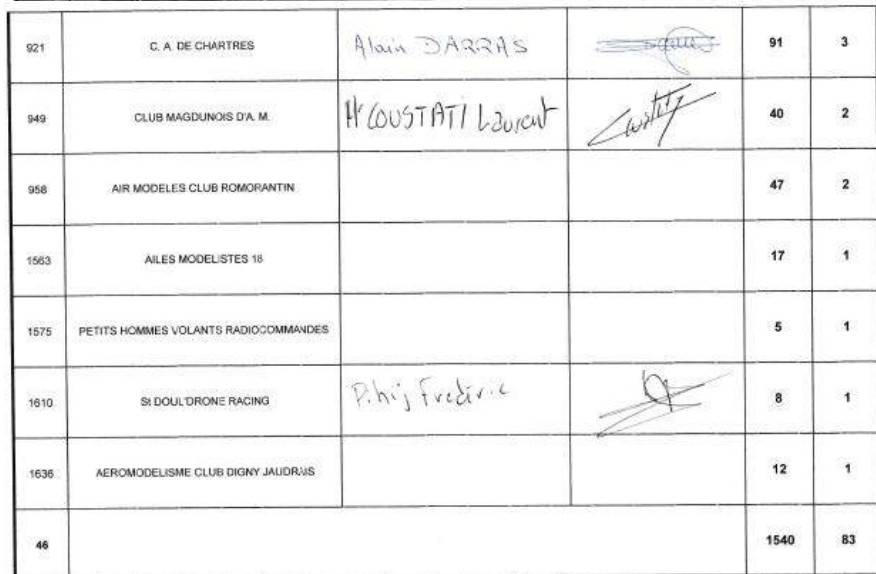 921 C. A. DE CHARTRES Alain DARRAS 91 3
949 CLUB MAGDUNOIS D'A. M. Mr COUSTATI Laurent 40 2
958 AIR MODELES CLUB ROMORANTIN 47 2
1563 AILES MODELISTES 18 17 1
1575 PETITS HOMMES VOLANTS RADIOCOMMANDES 5 1
1610 St DOUL'DRONE RACING Frederic 8 1
1636 AEROMODELISME CLUB DIGNY JAUDRAIS 12 1
46 1540 83